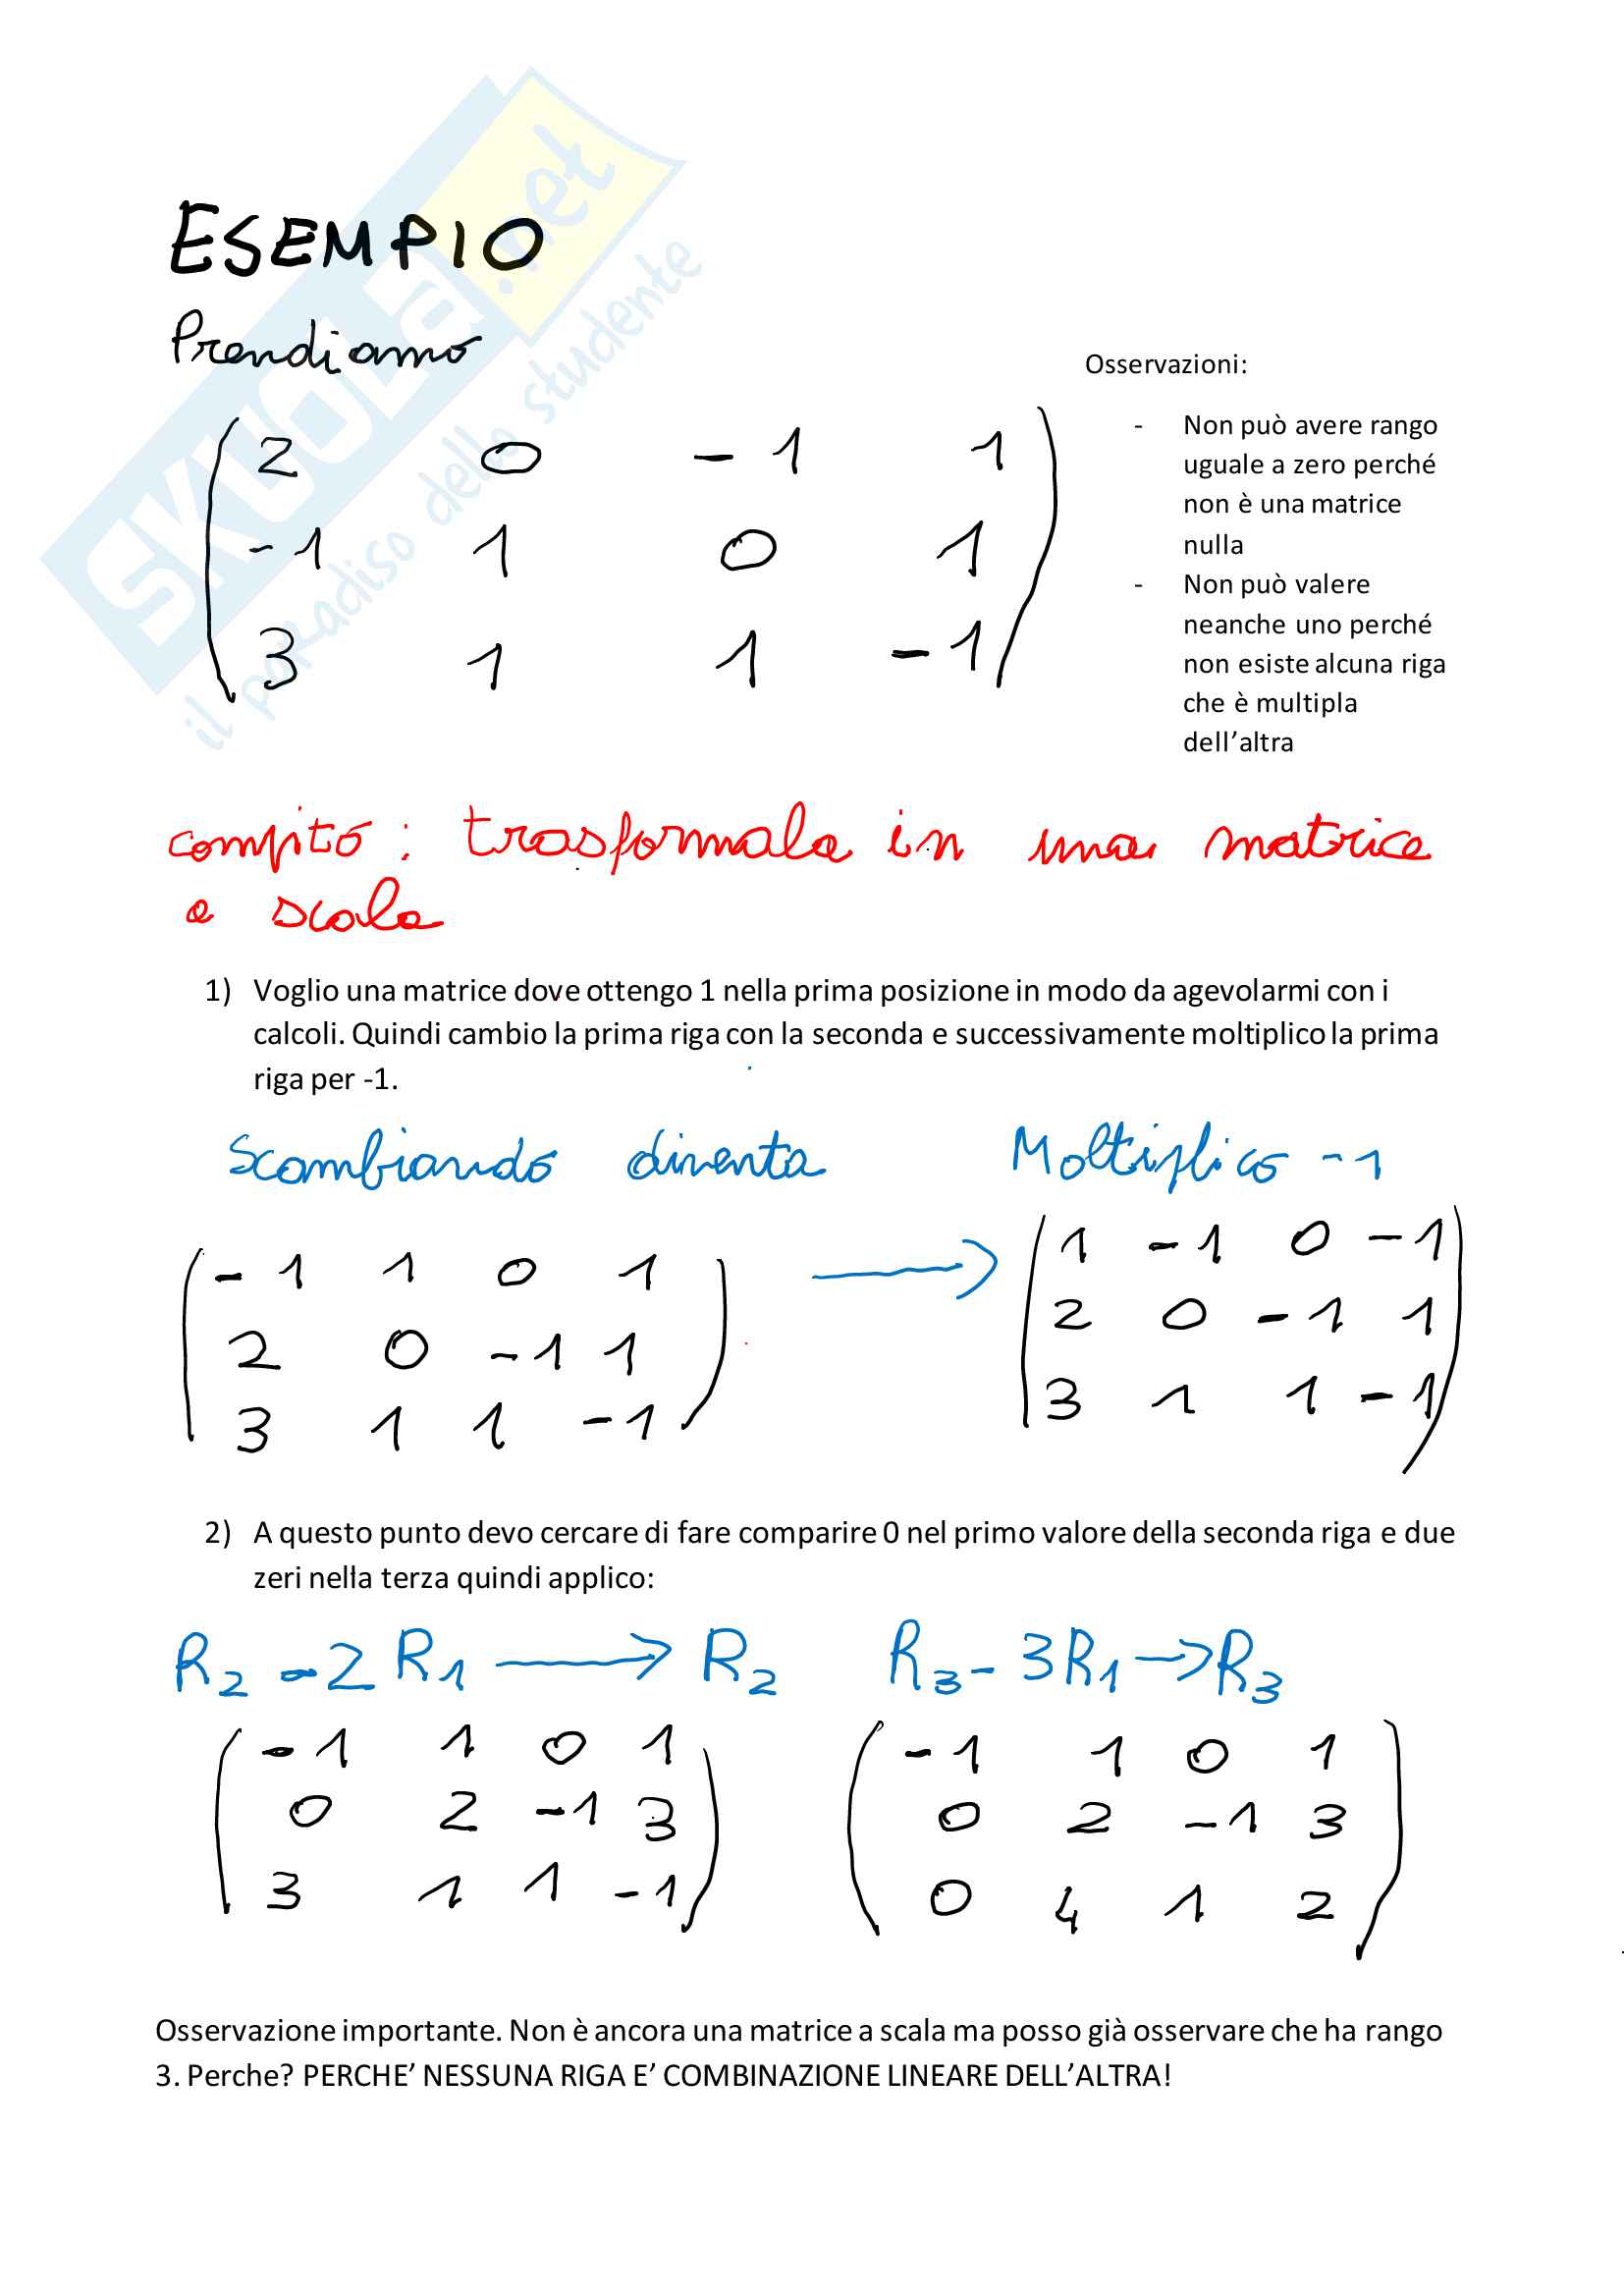 SKUOLA.net
il paradiso dello studente
ESEMPIO
Prendiamo
2 0 -1 1
-1 1 0 1
3 1 1 -1
Osservazioni:
- Non può avere rango
uguale a zero perché
non è una matrice
nulla
- Non può valere
neanche uno perché
non esiste alcuna riga
che è multipla
dell’altra
compito : trasformala in una matrice
a scala
1) Voglio una matrice dove ottengo 1 nella prima posizione in modo da agevolarmi con i
calcoli. Quindi cambio la prima riga con la seconda e successivamente moltiplico la prima
riga per -1.
Scambiando diventa
-1 1 0 1
2 0 -1 1
3 1 1 -1
Moltiplico -1
1 -1 0 -1
2 0 -1 1
3 1 1 -1
2) A questo punto devo cercare di fare comparire 0 nel primo valore della seconda riga e due
zeri nella terza quindi applico:
R2 - 2R1 → R2
-1 1 0 1
0 2 -1 3
3 1 1 -1
R3 - 3R1 → R3
-1 1 0 1
0 2 -1 3
0 4 1 2
Osservazione importante. Non è ancora una matrice a scala ma posso già osservare che ha rango
3. Perche? PERCHE’ NESSUNA RIGA E’ COMBINAZIONE LINEARE DELL’ALTRA!